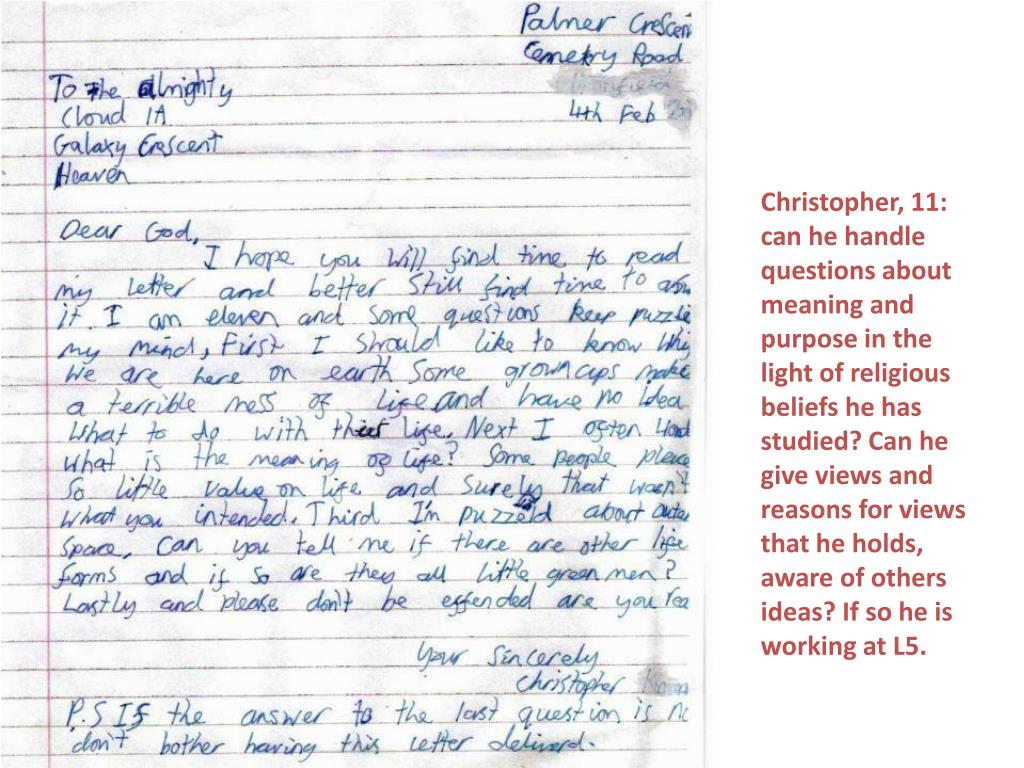 Palner Crescen
Cemetry Road
4th Feb
To The Almighty
Cloud 1A
Galaxy Crescent
Heaven
Dear God,
I hope you will find time to read
my letter and better still find time to
it. I am eleven and some questions keep puzzle
my mind, First I should like to know Why
We are here on earth Some grown ups make
a terrible mess of life and have no idea
What to do with thier life. Next I often
what is the meaning of life? Some people place
So little value on life and Surely that wasn't
what you intended. Third I'm puzzeld about outer
Space, Can you tell me if there are other life
forms and if so are they all little green men?
Lastly and please don't be effended are you rea
Your Sincerely
Christopher
P.S If the answer to the last question is no
don't bother having this letter deliverd.
Christopher, 11:
can he handle
questions about
meaning and
purpose in the
light of religious
beliefs he has
studied? Can he
give views and
reasons for views
that he holds,
aware of others
ideas? If so he is
working at L5.